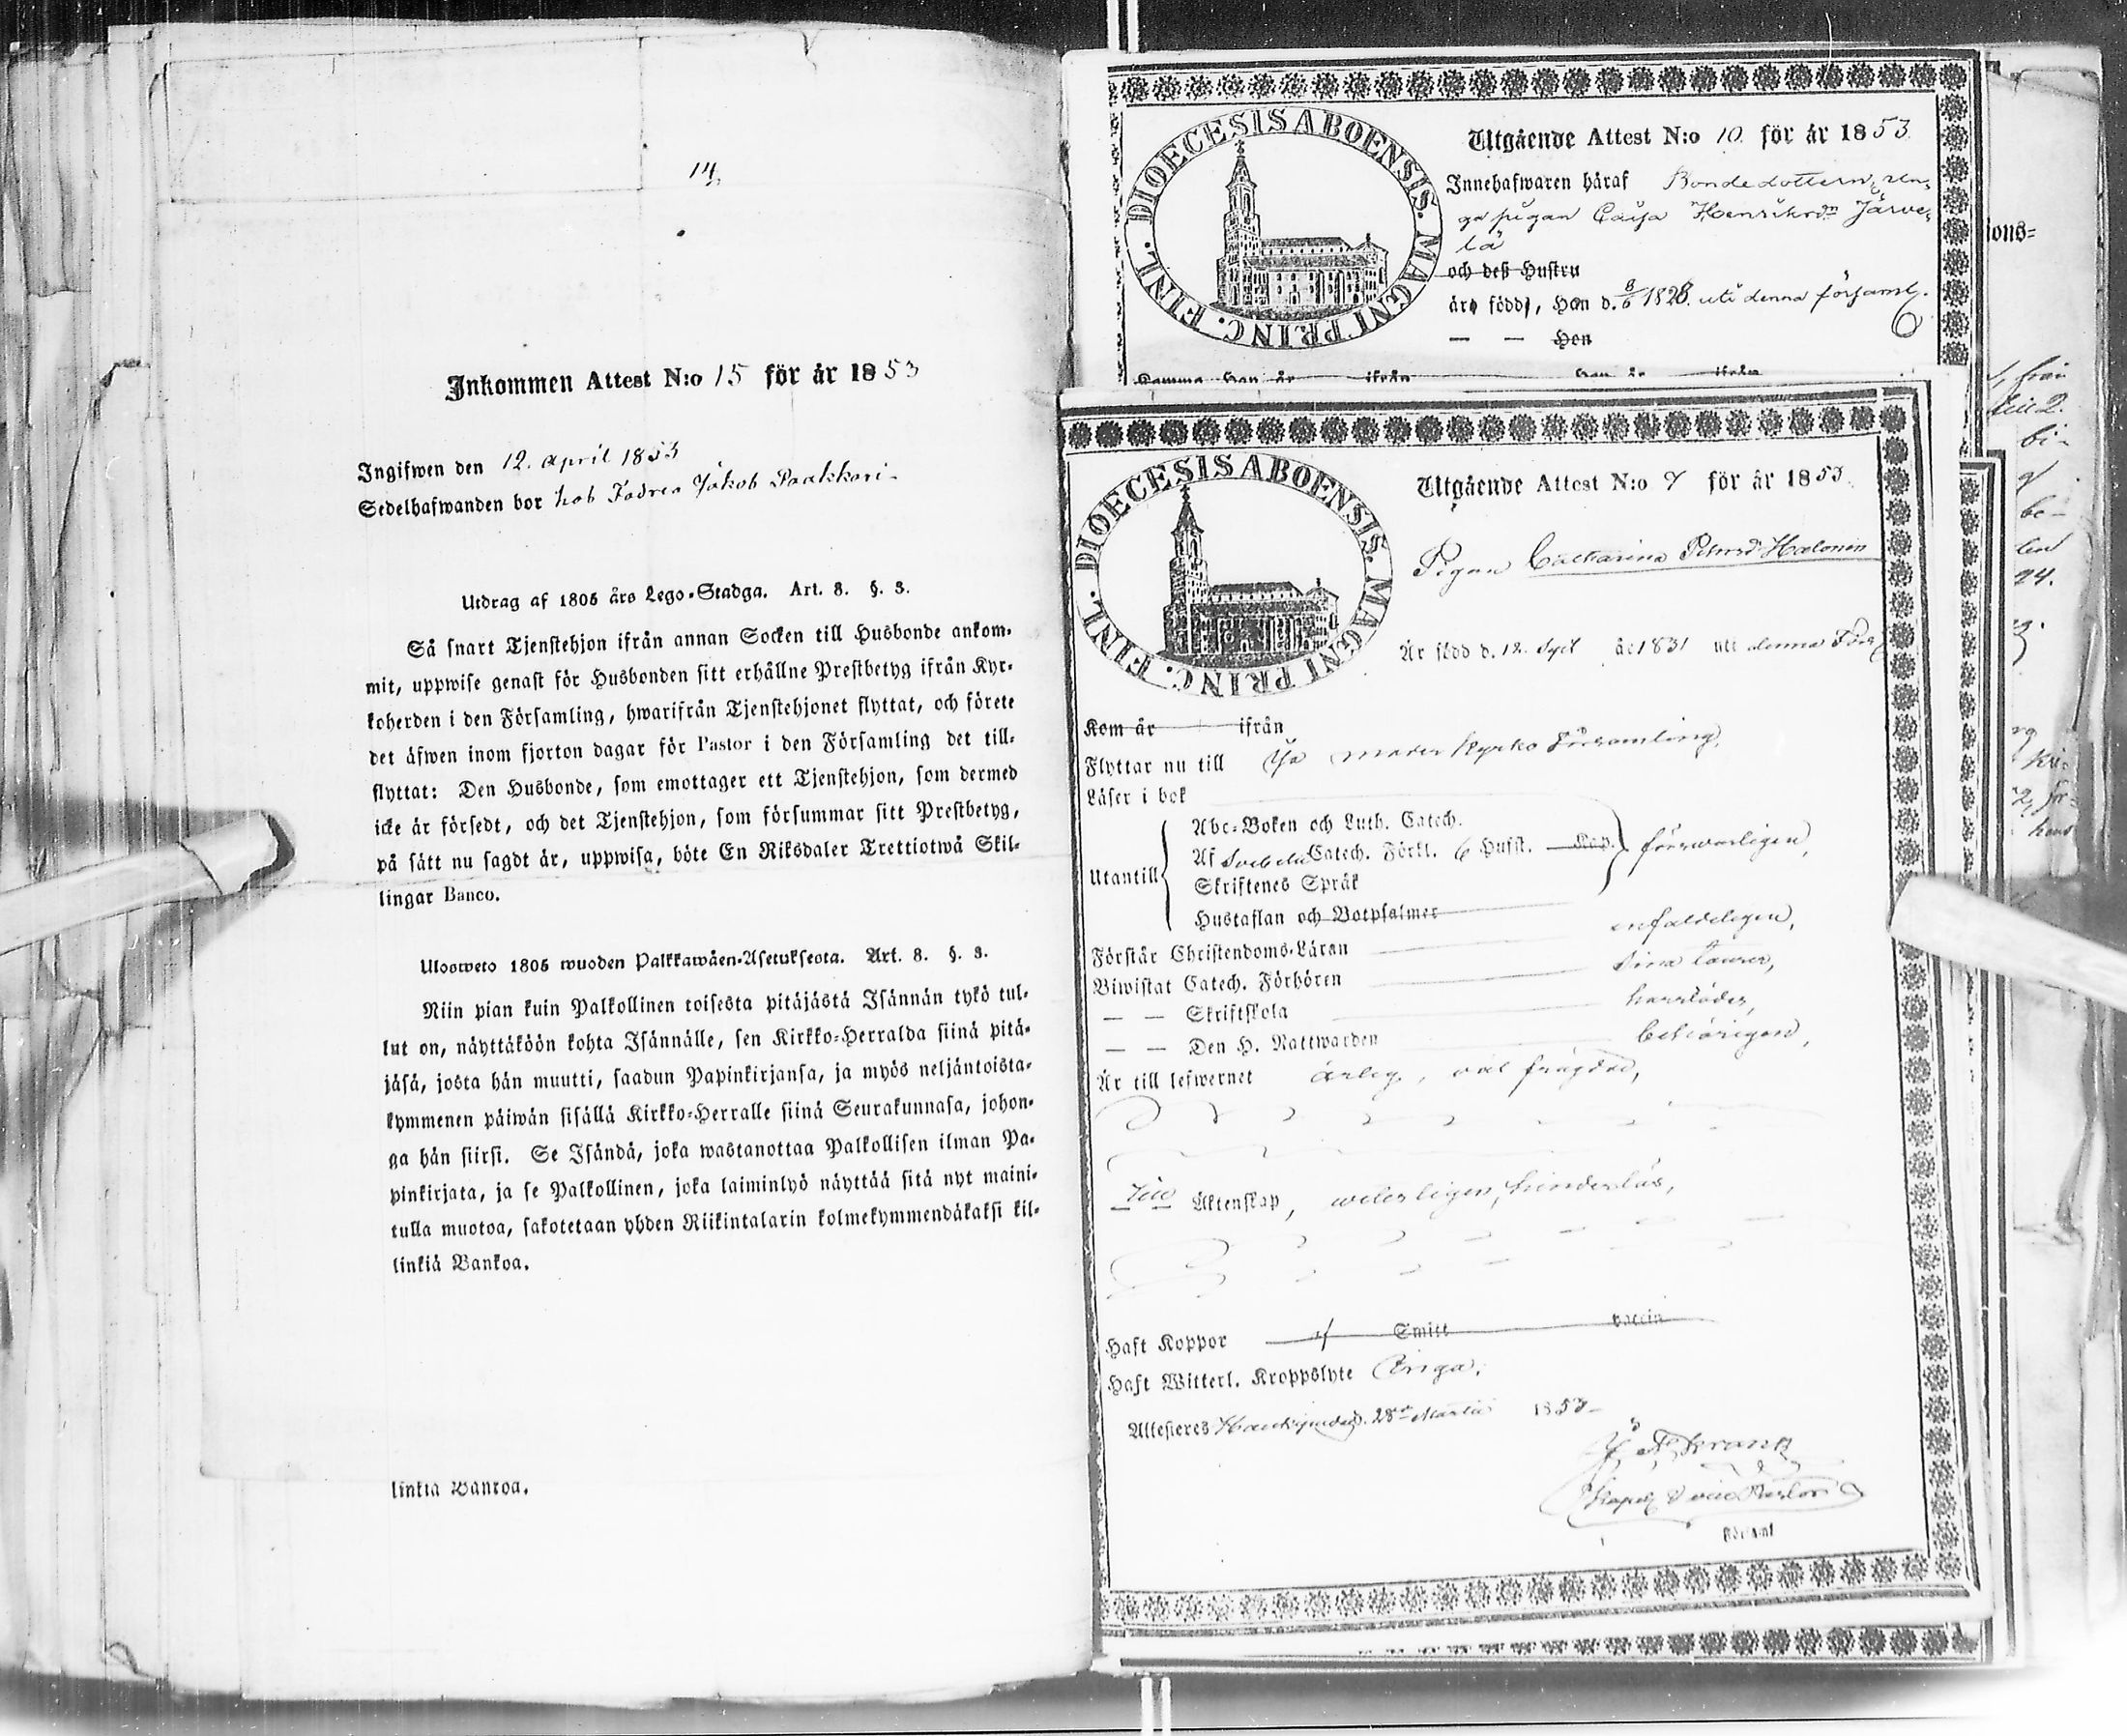 14,
Inkommen Attest N:o 15 för år 1853
Ingifwen den 12. April 1853
Sedelhafwanden bor hos Fadren Jakob Paakkari
Utdrag af 1805 års Lego-Stadga. Art. 8. §. 3.
Så snart Tjenstehjon ifrån annan Socken till Husbonde ankom-
mit, uppwise genast för Husbonden sitt erhållne Prestbetyg ifrån Kyr-
koherden i den Församling, hwarifrån Tjenstehjonet flyttat, och förete
det äfwen inom fjorton dagar för Pastor i den Församling det till-
flyttat: Den Husbonde, som emottager ett Tjenstehjon, som dermed
icke är försedt, och det Tjenstehjon, som försummar sitt Prestbetyg,
på sätt nu sagdt är, uppwisa, böte En Riksdaler Trettiotwå Skil-
lingar Banco.
Ulosweto 1805 wuoden Palkkawäen-Asetuksesta. Art. 8. §. 3.
Niin pian kuin Palkollinen toisesta pitäjästä Isännän tykö tul-
lut on, näyttäköön kohta Isännälle, sen Kirkko-Herralda siinä pitä-
jäsä, josta hän muutti, saadun Papinkirjansa, ja myös neljäntoista-
kymmenen päiwän sisällä Kirkko-Herralle siinä Seurakunnasa, johon-
ga hän siirsi. Se Isändä, joka wastanottaa Palkollisen ilman Pa-
pinkirjata, ja se Palkollinen, joka laiminlyö näyttää sitä nyt maini-
tulla muotoa, sakotetaan yhden Riikintalarin kolmekymmendäkaksi kil-
linkiä Bankoa.
linkiä Bankoa.
DIOECESIS ABOENSIS. MAGNI PRINC. FINL.
Utgående Attest N:o 10. för år 1853.
Innehafwaren häraf Bondedottern, un-
ga pigan Caisa Henriksdr Järve-
lä
och deß Hustru
äro född, Hon d. 8/6 1828. uti denna församl.
— — Hon
Komma, Han år ifrån Hon år ifrån
DIOECESIS ABOENSIS. MAGNI PRINC. FINL.
Utgående Attest N:o 7 för år 1853.
Pigan Catharina Petersdr Halonen
Är född d. 12. Sept år 1831 uti denna Förs
Kom år ifrån
Flyttar nu till moder kyrko Församling,
Läser i bok
Utantill
Abc-Boken och Luth. Catech.
Af Svebelii Catech. Förkl. 6 Hufst. Kap. förswarligen,
Skriftenes Språk
Hustaflan och Botpsalmer
Förstår Christendoms-Läran enfaldeligen,
Biwistat Catech. Förhören sina tourer,
— — Skriftskola
— — Den H. Nattwarden behörigen,
Är till lefwernet ärlig, väl frägdad,
Till Äktenskap, weterligen, hinderlös,
Haft Koppor af Smitt vaccin
Haft Witterl. Kroppslyte Inga,
Attesteras d. 28de Martii 1853
Krank
Församl
ions-
från
till 2.
bi-
be-
24.